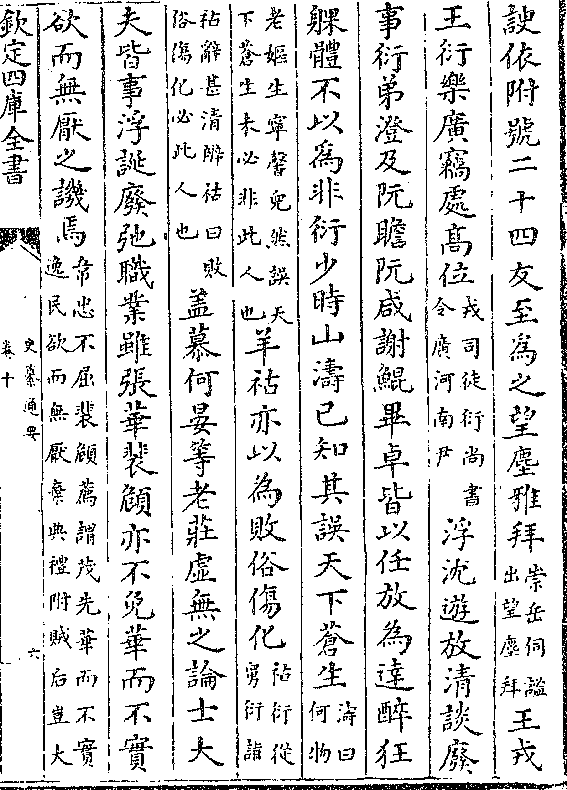 諛依附號二十四友至為之望塵雅拜崇岳伺謐出望塵拜王戎
王衍樂廣竊處髙位戎司徒衍尚書令廣河南尹浮沈遊放清談廢
事衍弟澄及阮瞻阮咸謝鯤畢卓皆以任放為達醉狂
躶體不以為非衍少時山濤已知其誤天下蒼生濤曰何物
老嫗生寧馨兒然誤天下蒼生未必非此人也羊祜亦以為敗俗傷化祜衍從舅衍詣
祜辭甚清辯祜曰敗俗傷化必此人也盖慕何晏等老莊虛無之論士大
夫皆事浮誕廢弛職業雖張華裴頠亦不免華而不實
欲而無厭之譏焉韋忠不屈裴頠薦謂茂先華而不實逸民欲而無厭棄典禮附賊后豈大
欽定四庫全書
史纂通要
卷十
六